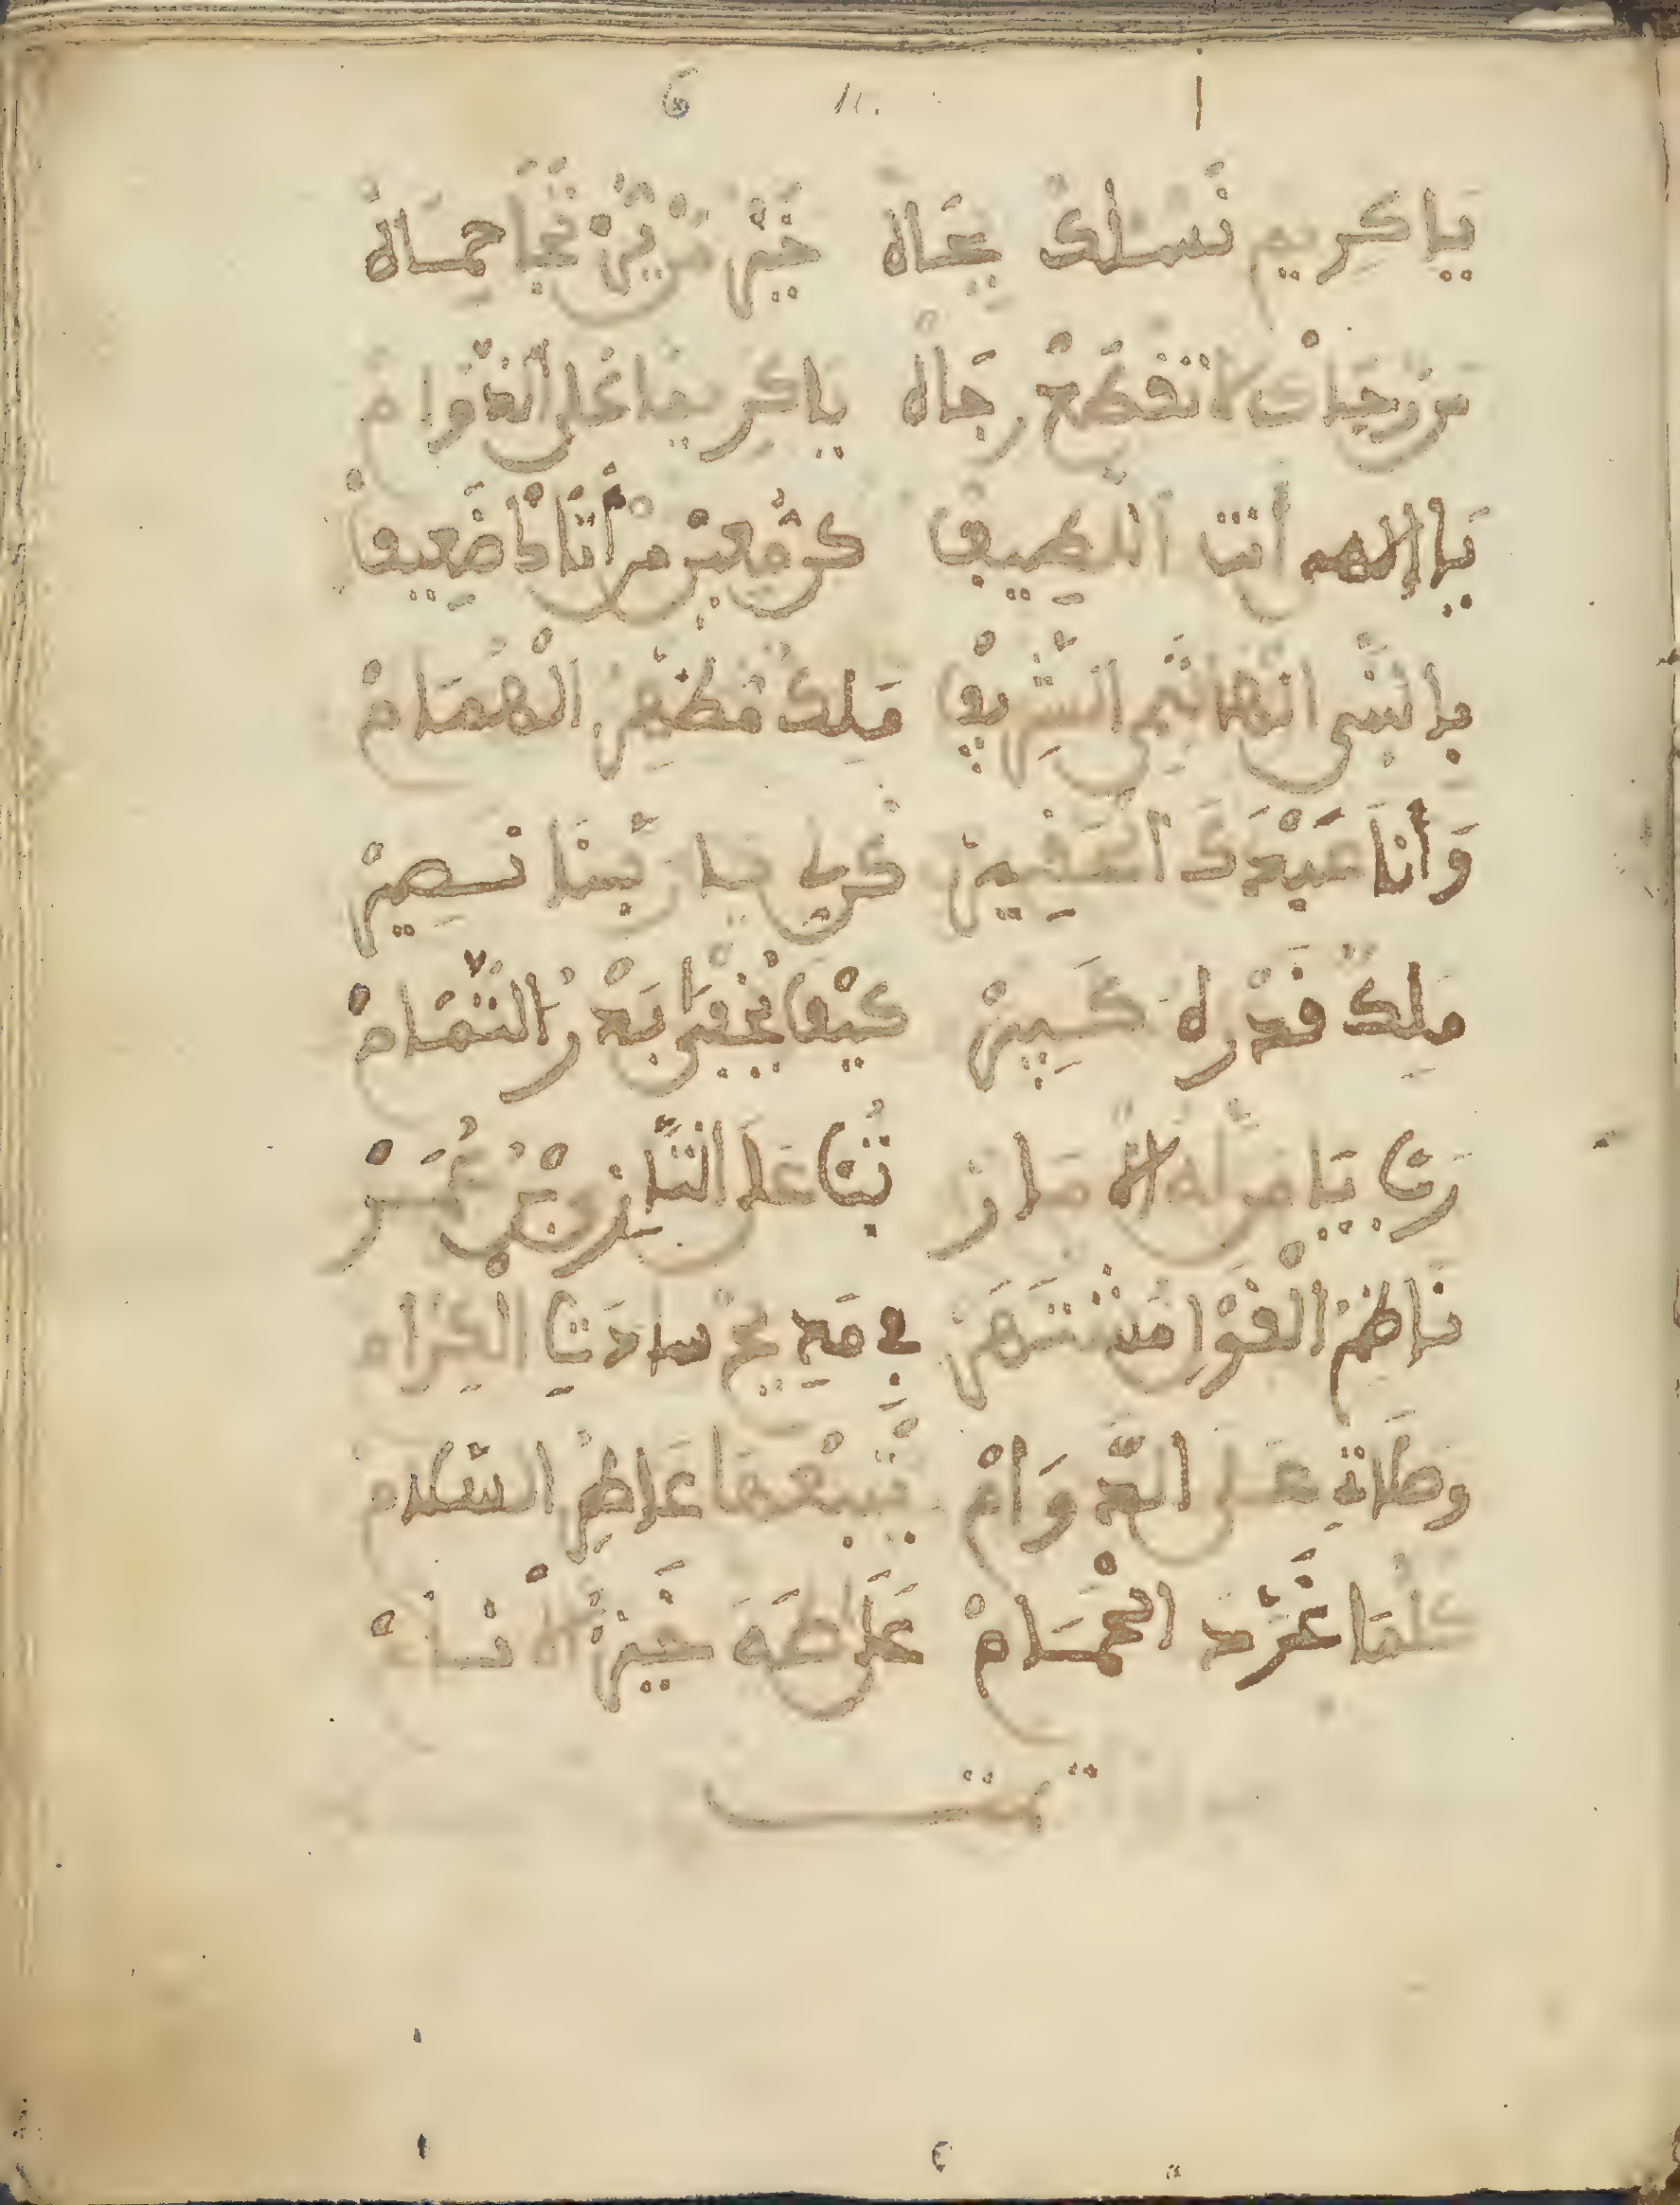 يَا كرِيم نَسْئَلك بِجَاه خَيْر مَنْ يُرْتَجَا حِمَاهْ
مَن رَجَاكْ لا تقطَعْ رجَاه يا كرِيما على الدَّوَامْ
يَا إلاهي أنت اللطِيف كن مُعين من أتاكْ ضَعِيف
بالنّبي الهاشِمي الشّرِيف مَلِك مُظهِر الْهُمَامْ
وَأنا عَبْدَكَ الحَقِير كُن لي يا ربّنا نصِيرْ
مَلِك قَدْرُه كَبِيرْ كيْف يُخْفَى بَدْرُ التَّمَامْ
رَبّ يَا من لهُ الأمَر تُبْ على التّازي بن عُمَرْ
نَاظمْ القَوْل مُشْتَهَرْ في مَدِيح سادَتِ الكِرام
وصَلاتِ علَى الدّوَامْ يَتبعْهَا عَاطِرُ السّلام
كلّمَا غَرّدَ الحْمَامْ عَلَى طَهَ خَيْرُ الأنَامْ
تمت